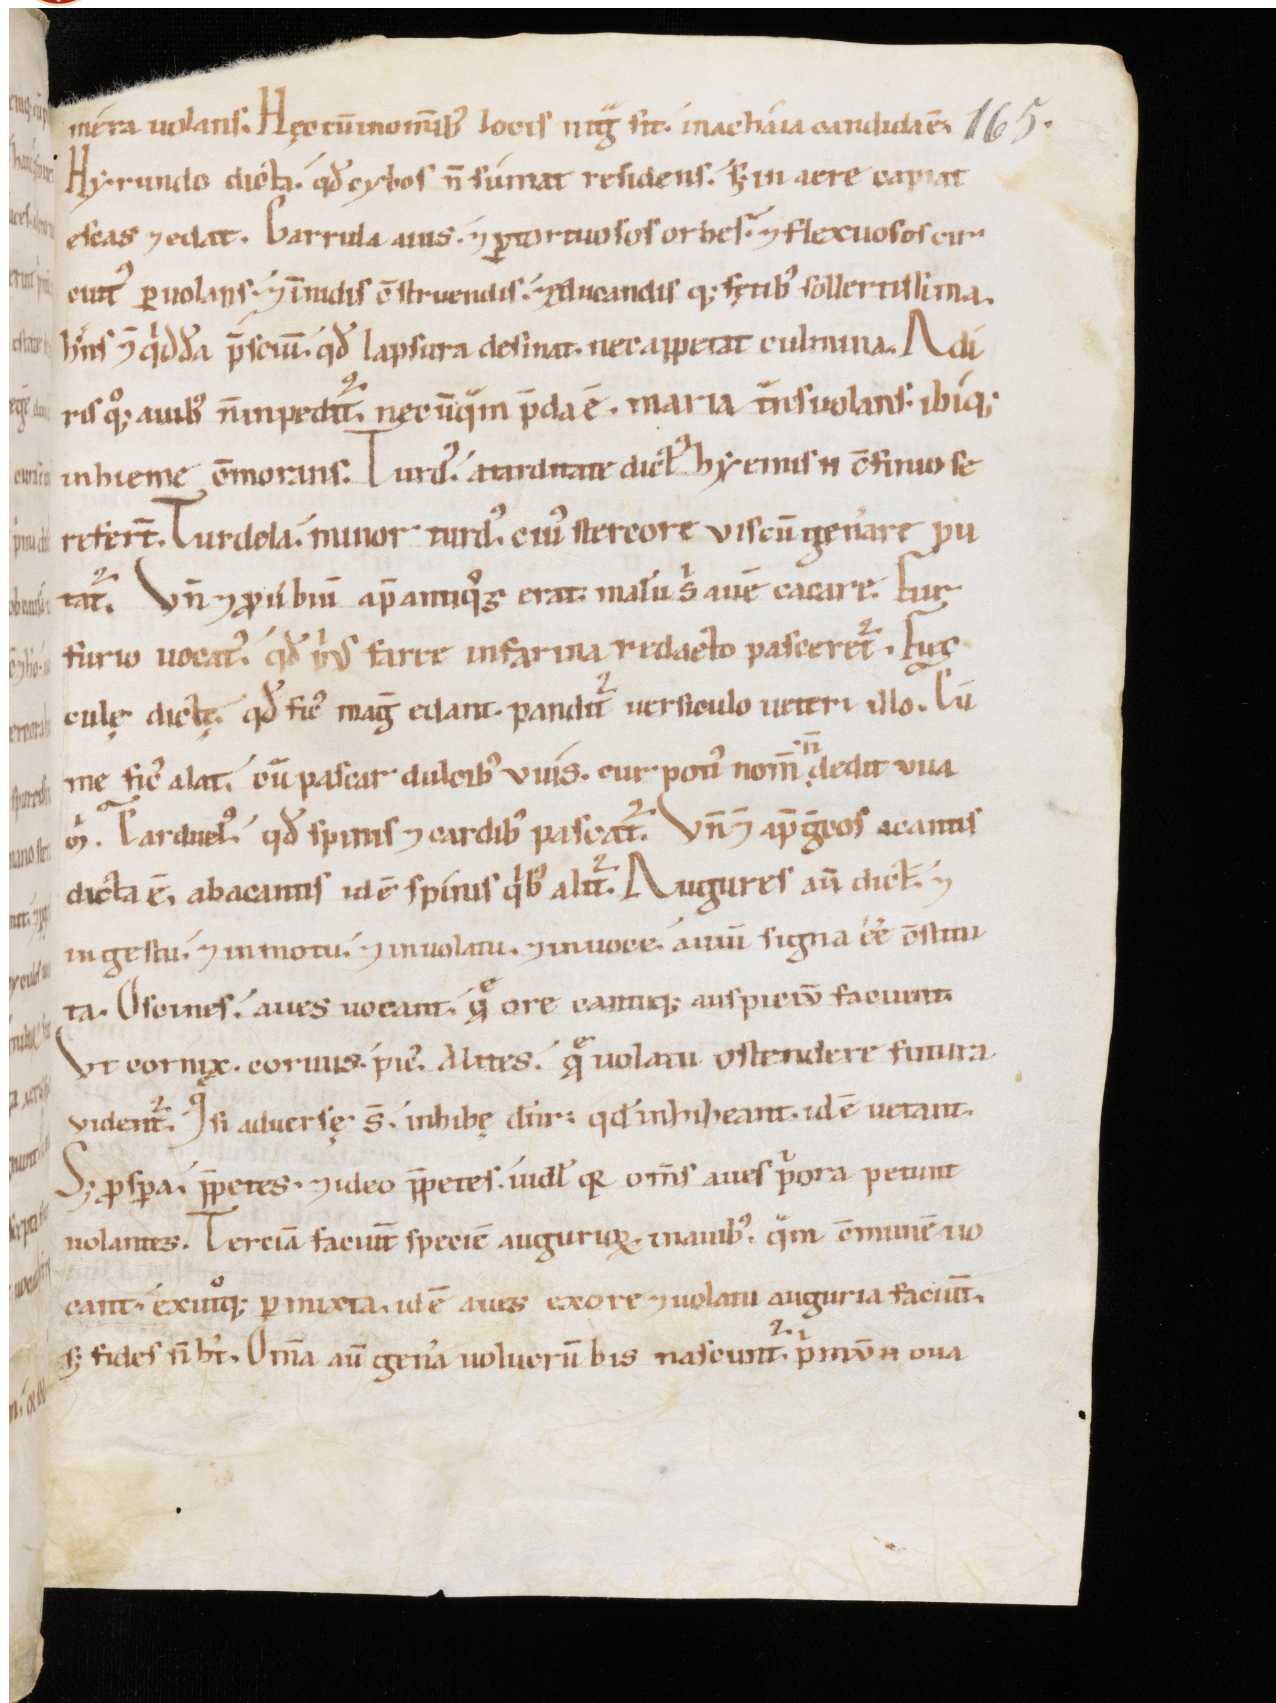 mera uolans. Hęc cū in om̄ib; locis nig̅ sit. in achaia candida ē. 165.
Hyrundo dicta. qđ cybos n̄ sumat residens. s; in aere capiat
escas ⁊ edat. Garrula auis. ⁊ ꝑ tortuosos orbes. ⁊ flexuosos cir
cuit᷒ ꝑuolans. ⁊ in nidis c̄struendis. ⁊ educandis q; fętib᷒ sollertissima.
h̄ns ⁊ q̇dda p̄sciū. qđ lapsura desinat. nec appetat culmina. A di
ris q̊; auib᷒ n̄ inpetit᷑. nec ūq̄m p̄da ē. maria t̄nsuolans. ibiq;
in hieme c̄morans. Turd᷒. a tarditate dict᷒ hyemis n̄ c̄finio se
refert̄. Turdela. minor turd᷒. cui᷒ stercore viscū gen̄are pu
tat᷑. Vn̄ ⁊ ꝓuerbiū ap̄ antiq̊ꝝ erat. malū s̓ auē cacare. Fur
furio uocat᷒. qđ p̓us farre in farina redacto pasceret᷑. Fyc
culę dictę. qđ fic᷒ mag̅ edant. pandit᷑ versiculo ueteri illo. Cū
me fic᷒ alat. cū pascar dulcib᷒ vuis. cur poti᷒ nom̄ n̄ dedit vua
m̓. Carduel᷒. qđ spinis ⁊ cardib᷒ pascat᷑. Vn̄ ⁊ ap̄ gręos acantis
dicta ē. ab acantis id ē spinis q̇b᷒ alit᷑. Augures aū dic̄t. ⁊
in gestu. ⁊ in motu. ⁊ in uolatu. ⁊ in uoce. auiū signa ēē c̄stitu
ta. Oscines. aues uocant. q̨ ore cantuq; auspiciū faciunt.
Vt cornix. coruus. pic᷒. Alites. q̨ uolatu ostendere futura
vident᷑. Q̨ si aduersę s̄. inhibę dn̄r. qđ inhibeant. id ē uetant.
S; ꝓspa. p̄petes. ⁊ ideo p̄petes. uidl̄ qr om̄s aues p̓ora petunt
uolantes. Terciā faciūt speciē auguriꝝ. in auib᷒. q̄m c̄munē uo
cant. ex utꝰq; ꝑmixta. id ē aues ex ore ⁊ uolatu auguria faciūt.
s; fides n̄ h̄t. Om̄a aū gen̄a uolucrū bis nascunt᷑. p̓mū n̄ oua